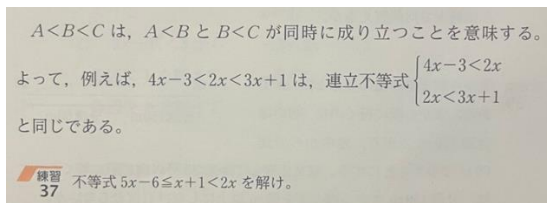 A<B<C は，A<B と B<C が同時に成り立つことを意味する。
よって，例えば，4x−3<2x<3x+1 は，連立不等式 { 4x−3<2x
2x<3x+1
と同じである。
練習
37 不等式 5x−6≦x+1<2x を解け。